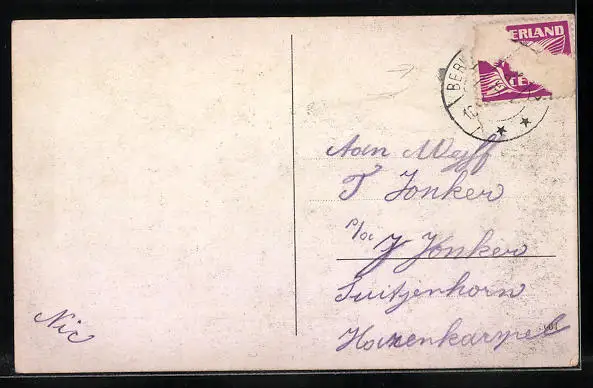 ERLAND
CE
BER
Aan Mejff
T Jonker
p/a J Jonker
Tuitjenhorn
Harenkarspel
Nic